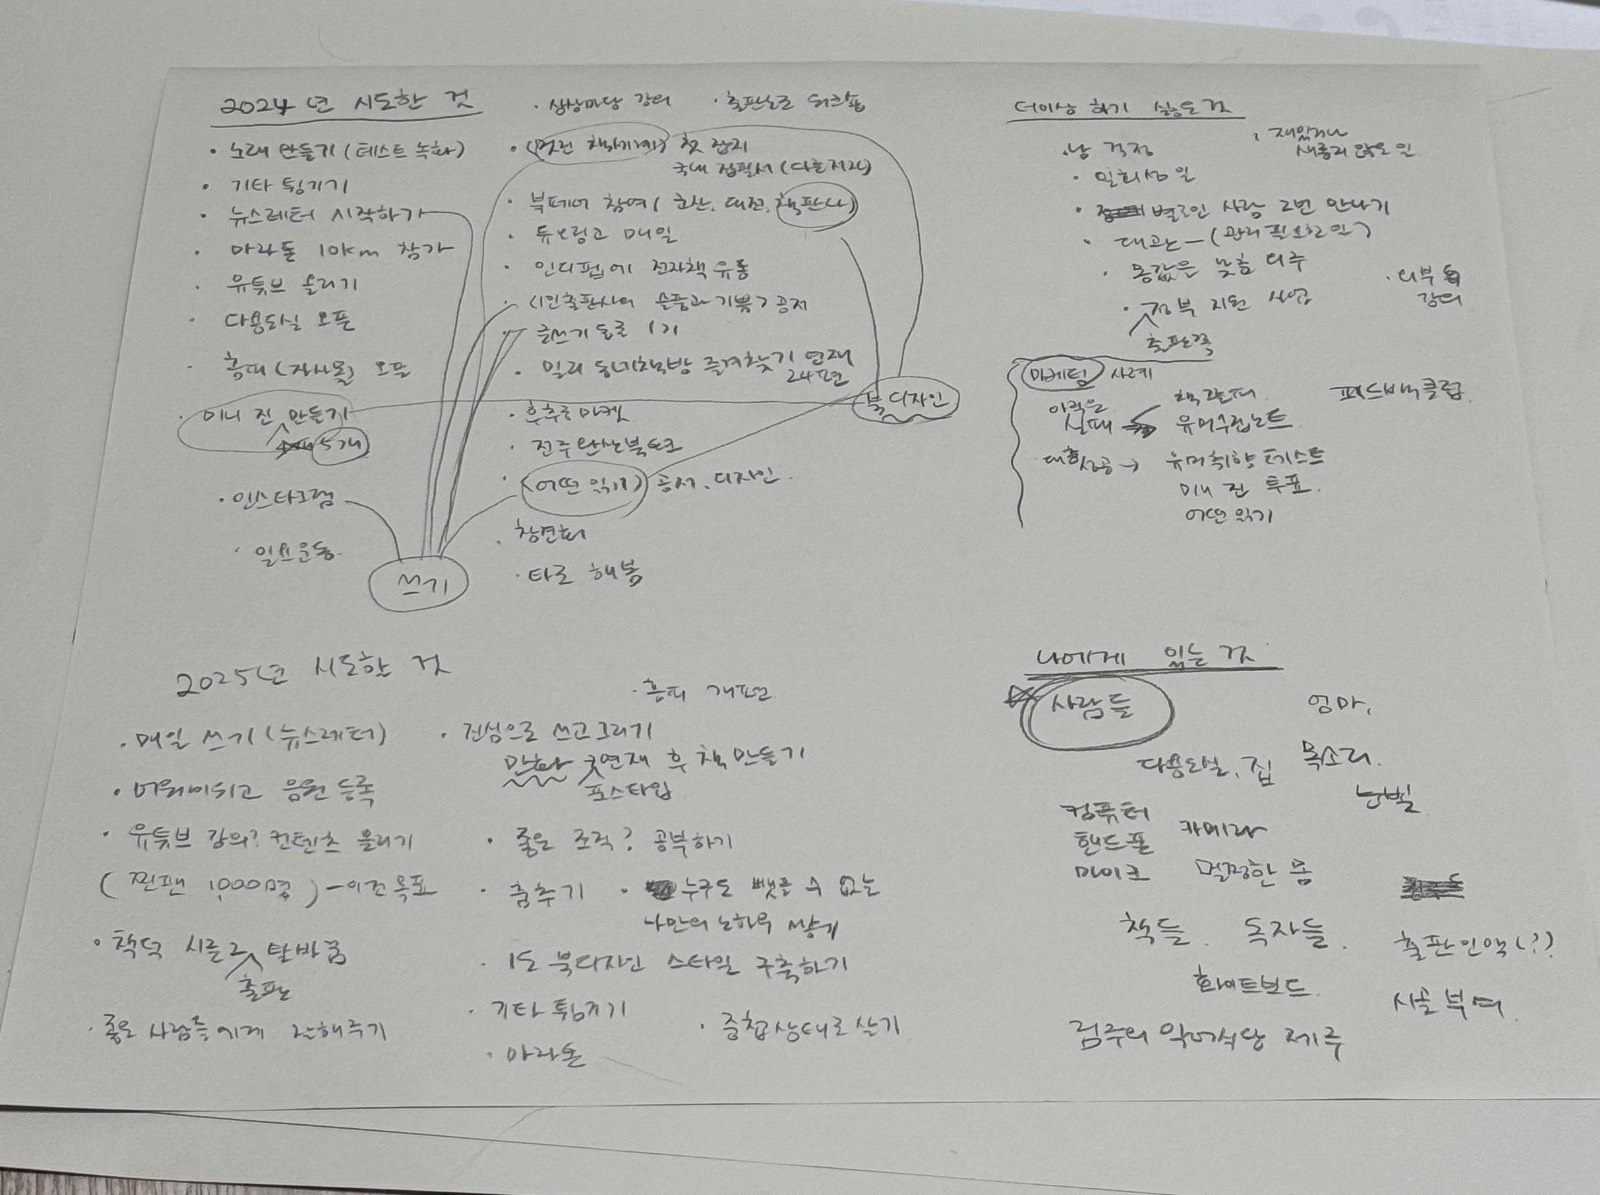 2024년 시도한 것
· 노래 만들기 (테스트 녹화)
· 기타 튕기기
· 뉴스레터 시작하기
· 마라톤 10km 참가
· 유튜브 올리기
· 다용도실 오픈
· 홈페(자사몰) 오픈
· 미니 진 만들기
5개
· 인스타그램
· 일요운동
쓰기
· 상상마당 강의
· 출판노트 워크숍
· 첫 잡지
국내 집필서 (다른저자)
· 북페어 참여 (군산, 대전, 책판다)
· 듀오링고 매일
· 인디펍에 전자책 유통
· <1인출판사의 슬픔과 기쁨> 공저
· 글쓰기 동료 1기
· 밀리 동네책방 즐겨찾기 연재
24편
북디자인
· 후추로마켓
· 전주완산북토크
· <어떤 읽기> 공저, 디자인
· 타로 해봄
더이상 하기 싫은 것
· 재밌거나
새롭지 않은 일
· 남 걱정
· 일회성 일
· 별로인 사람 2번 만나기
· 대관 — (관리필요한 일)
· 똥값은 맞춤 외주
· 외부
강의
· 정부 지원 사업
출판쪽
마케팅 사례
이륙은
실패
책판다
유머수집노트
피드백클럽
대성공 → 유머취향테스트
미니 진 투표
어떤 읽기
2025년 시도한 것
· 매일 쓰기 (뉴스레터)
· 음원 등록
· 유튜브 강의? 컨텐츠 올리기
(찐팬 1,000명) - 이건 목표
· 책덕 시즌2 탈바꿈
출판
· 좋은 사람들에게 잘해주기
· 홈피 개편
· 진심으로 쓰고 그리기
만화 연재 후 책 만들기
포스타입
· 좋은 조직? 공부하기
· 춤추기
· 누구도 뺏을 수 없는
나만의 노하우 쌓기
· 1도 북디자인 스타일 구축하기
· 기타 튕기기
· 중첩상태로 살기
· 마라톤
나에게 있는 것
사람들
엄마,
다용도실, 집
목소리,
눈빛
컴퓨터
핸드폰
카메라
마이크
멀쩡한 몸
책들,
독자들,
출판인맥(?)
화이트보드
시골 부여